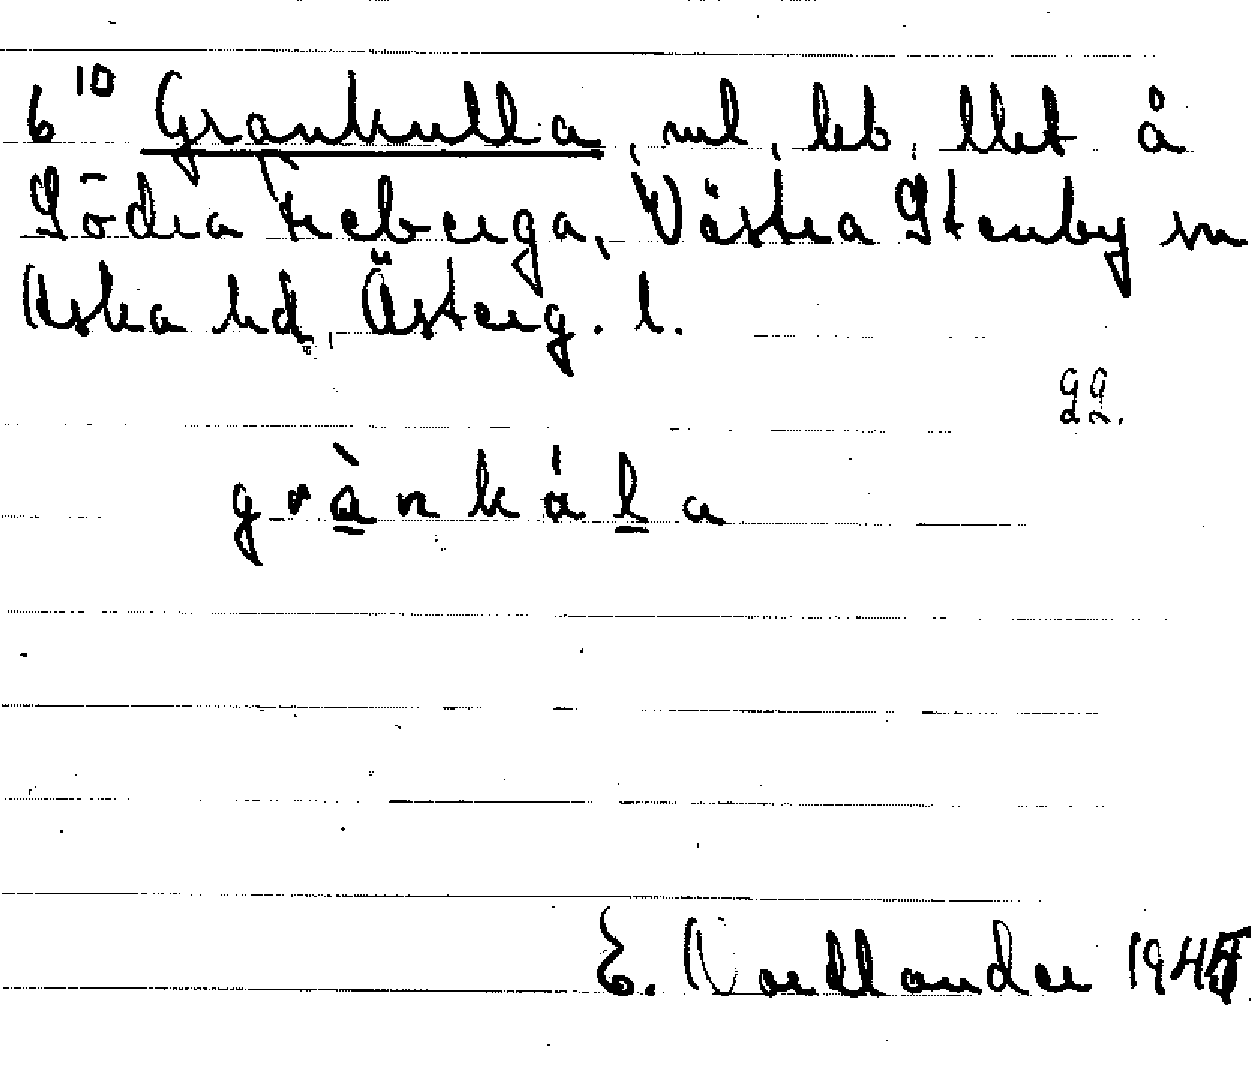 6¹⁰ Grankulla, ml, leb, llet å
Södra Freberga, Västra Stenby sn
Aska hd, Österg. l.
gg.
grànkåla
E. Nordlander 1945